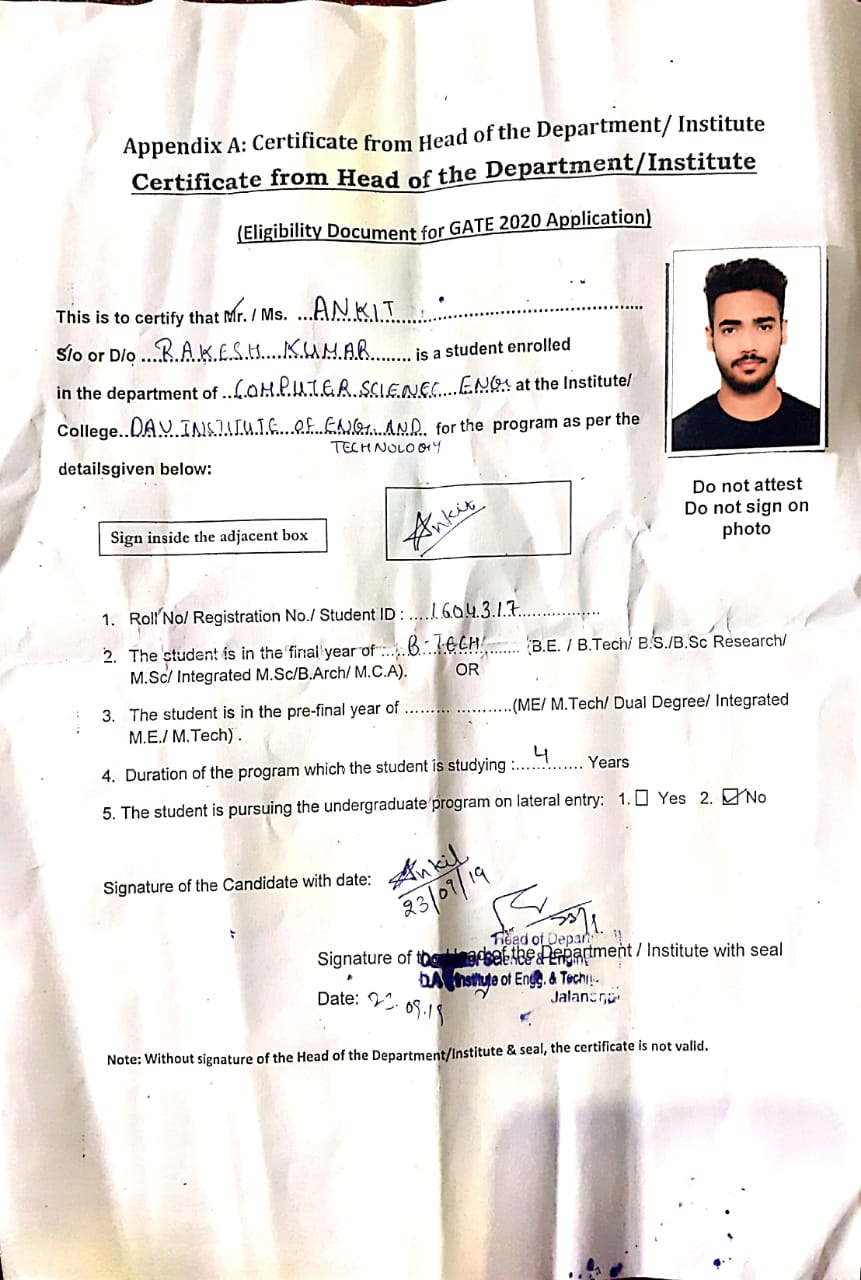 Appendix A: Certificate from Head of the Department/ Institute
Certificate from Head of the Department/Institute
(Eligibility Document for GATE 2020 Application)
This is to certify that Mr. / Ms. ...ANKIT..............................
S/o or D/o ...RAKESH KUMAR........ is a student enrolled
in the department of ..COMPUTER SCIENCE ENGG at the Institute/
College..DAV INSTITUTE OF ENGG. AND for the program as per the
TECHNOLOGY
detailsgiven below:
Do not attest
Do not sign on
photo
Sign inside the adjacent box
Ankit
1. Roll No/ Registration No./ Student ID : ....1604317................
2. The student is in the final year of :....B-TECH........ (B.E. / B.Tech/ B.S./B.Sc Research/
M.Sc/ Integrated M.Sc/B.Arch/ M.C.A). OR
3. The student is in the pre-final year of ......... ...........(ME/ M.Tech/ Dual Degree/ Integrated
M.E./ M.Tech) .
4. Duration of the program which the student is studying :......4...... Years
5. The student is pursuing the undergraduate program on lateral entry: 1. ☐ Yes 2. ☑ No
Signature of the Candidate with date: Ankit
23/09/19
Head of Depar
Signature of the Head of the Department / Institute with seal
Institute of Engg. & Techn.
Jalandhar
Date: 23.09.19
Note: Without signature of the Head of the Department/Institute & seal, the certificate is not valid.